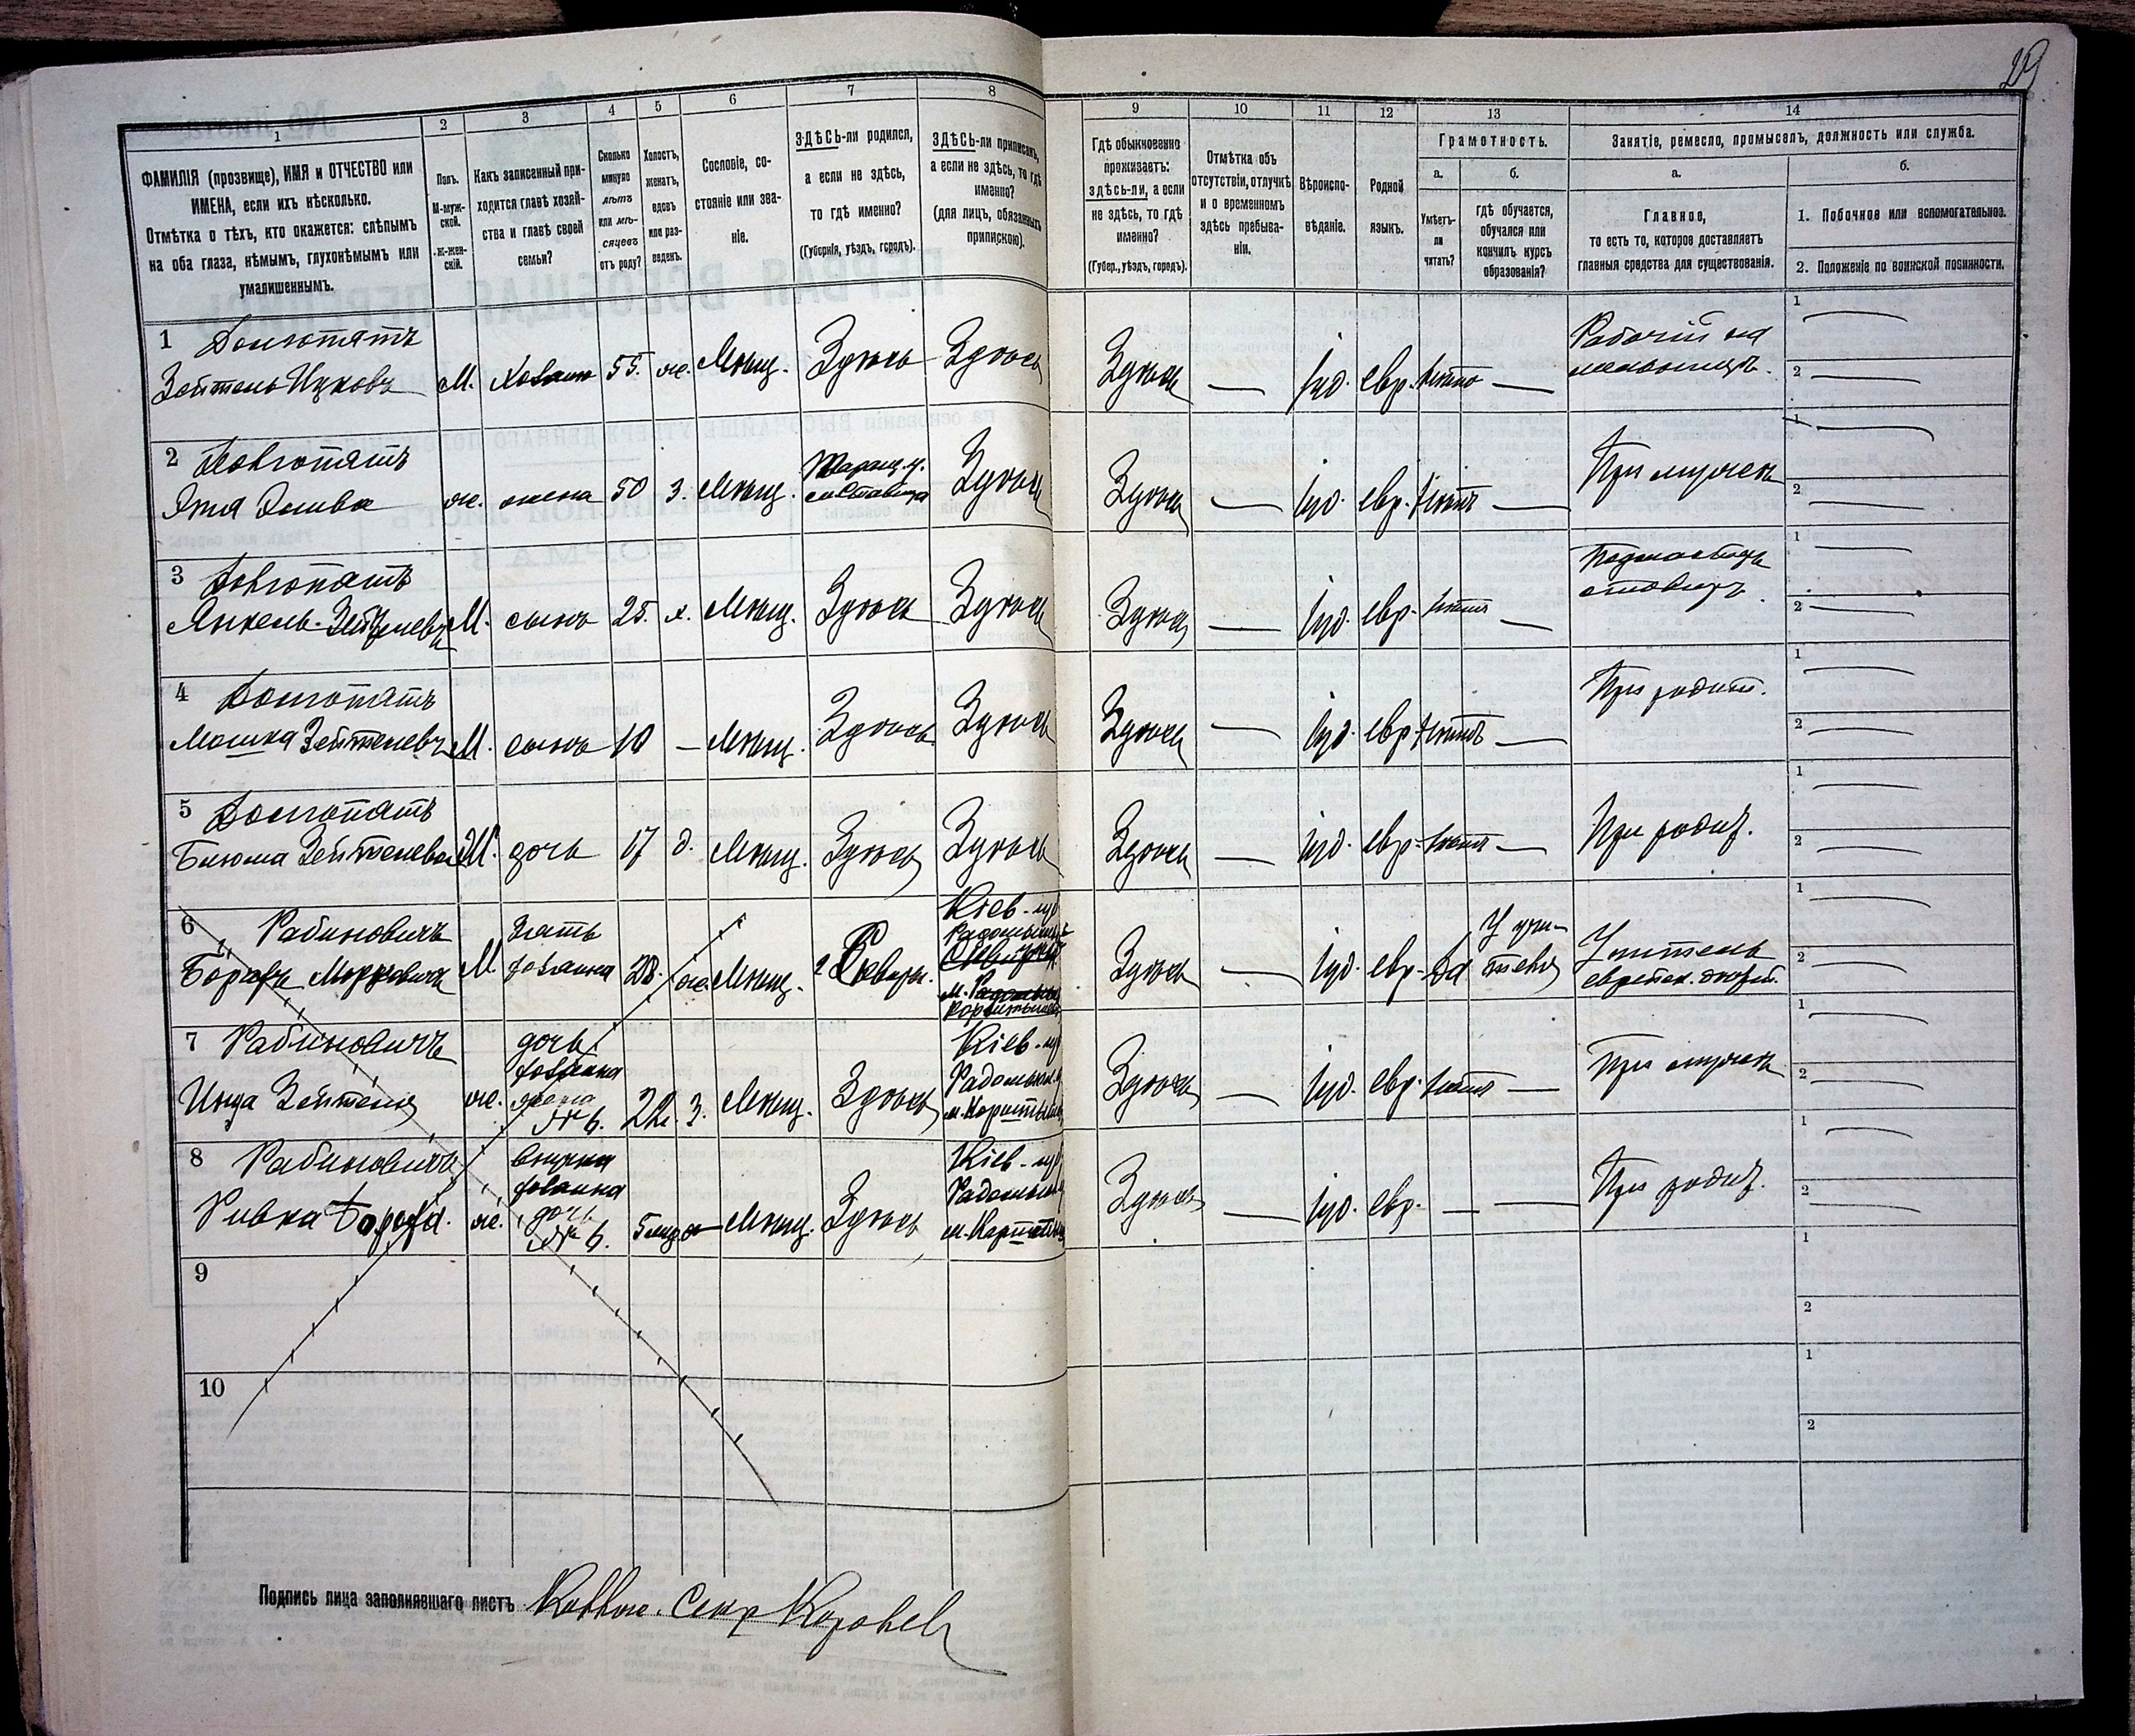 29
1 2 3 4 5 6 7 8 9 10 11 12 13 14
ФАМИЛІЯ (прозвище), ИМЯ и ОТЧЕСТВО или
ИМЕНА, если ихъ нѣсколько.
Отмѣтка о тѣхъ, кто окажется: слѣпымъ
на оба глаза, нѣмымъ, глухонѣмымъ или
умалишеннымъ.
Полъ.
М-муж-
ской.
Ж-жен-
скій.
Какъ записанный при-
ходится главѣ хозяй-
ства и главѣ своей
семьи?
Сколько
минуло
лѣтъ
или мѣ-
сяцевъ
отъ роду?
Холостъ,
женатъ,
вдовъ
или раз-
веденъ.
Сословіе, со-
стояніе или зва-
ніе.
ЗДѢСЬ-ли родился,
а если не здѣсь,
то гдѣ именно?
(Губернія, уѣздъ, городъ).
ЗДѢСЬ-ли приписанъ,
а если не здѣсь, то гдѣ
именно?
(для лицъ, обязанныхъ
припискою).
Гдѣ обыкновенно
проживаетъ:
здѣсь-ли, а если
не здѣсь, то гдѣ
именно?
(Губер., уѣздъ, городъ).
Отмѣтка объ
отсутствіи, отлучкѣ
и о временномъ
здѣсь пребыва-
ніи.
Вѣроиспо-
вѣданіе.
Родной
языкъ.
Грамотность.
а.
Умѣетъ-
ли
читать?
б.
гдѣ обучается,
обучался или
кончилъ курсъ
образованія?
Занятіе, ремесло, промыселъ, должность или служба.
а.
Главное,
то есть то, которое доставляетъ
главныя средства для существованія.
б.
1. Побочное или вспомогательное.
2. Положеніе по воинской повинности.
1 Долгопятъ
Зейтель Ицковъ М. Хозяинъ 55. ж. Мѣщ. Здѣсь Здѣсь Здѣсь — Іуд. евр. нѣтъ — Рабочій на
мельницѣ.
2 Долгопятъ
ж. жена 50 з. Мѣщ. Таращ. у.
Здѣсь Здѣсь — Іуд. евр. Нѣтъ — При мужѣ
3 Долгопятъ
Янкель Зейтелевъ М. сынъ 25. х. Мѣщ. Здѣсь Здѣсь Здѣсь — Іуд. евр. нѣтъ —
4 Долгопятъ
Мошка Зейтелевъ М. сынъ 10 — Мѣщ. Здѣсь Здѣсь Здѣсь — Іуд. евр. Нѣтъ — При родит.
5 Долгопятъ
Блюма Зейтелева дочь 17 д. Мѣщ. Здѣсь Здѣсь Здѣсь — Іуд. евр. нѣтъ — При родит.
6 Рабиновичъ
М зять
хозяина 28. ж. Мѣщ. г Сквиры. Кіев. губ
Здѣсь — Іуд. евр. да У учи-
теля Учитель
еврейск.
7 Рабиновичъ
ж. дочь
хозяина
жена
№ 6. 22. з. Мѣщ. Здѣсь Кіев. губ
Радомысл.
м. Коростышев
Здѣсь — Іуд. евр. нѣтъ — При мужѣ
8 Рабиновичъ
Ривка ж. внучка
хозяина
дочь
№ 6. 5 мѣс. — Мѣщ. Здѣсь Кіев. губ
Радомысл
Здѣсь — Іуд. евр. — — При родит.
9
10
Подпись лица заполнявшаго листъ